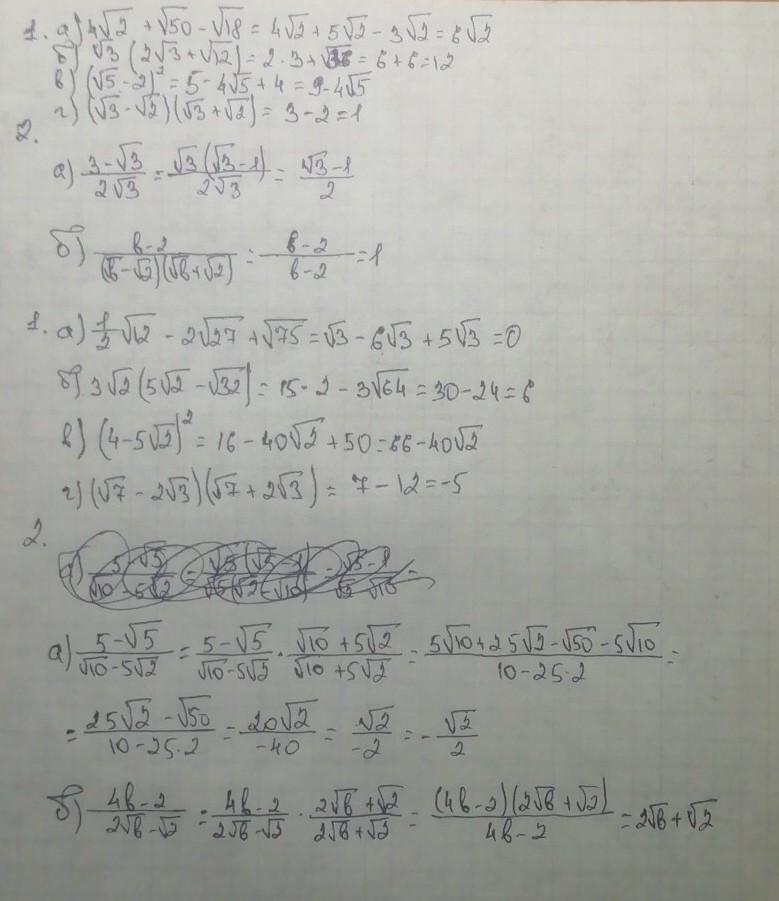 1. а) 4√2 + √50 - √18 = 4√2 + 5√2 - 3√2 = 6√2
б) √3 (2√3 + √12) = 2·3 + √36 = 6 + 6 = 12
в) (√5 - 2)² = 5 - 4√5 + 4 = 9 - 4√5
г) (√3 - √2)(√3 + √2) = 3 - 2 = 1
2.
а) (3 - √3)/(2√3) = (√3(√3 - 1))/(2√3) = (√3 - 1)/2
б) (b - 2)/((√b - √2)(√b + √2)) = (b - 2)/(b - 2) = 1
1. а) 1/2 √12 - 2√27 + √75 = √3 - 6√3 + 5√3 = 0
б) 3√2 (5√2 - √32) = 15·2 - 3√64 = 30 - 24 = 6
в) (4 - 5√2)² = 16 - 40√2 + 50 = 66 - 40√2
г) (√7 - 2√3)(√7 + 2√3) = 7 - 12 = -5
2.
а) (5 - √5)/(√10 - 5√2) = (5 - √5)/(√10 - 5√2) · (√10 + 5√2)/(√10 + 5√2) = (5√10 + 25√2 - √50 - 5√10)/(10 - 25·2) =
= (25√2 - √50)/(10 - 25·2) = (20√2)/(-40) = √2/(-2) = - √2/2
б) (4b - 2)/(2√b - √2) = (4b - 2)/(2√b - √2) · (2√b + √2)/(2√b + √2) = ((4b - 2)(2√b + √2))/(4b - 2) = 2√b + √2